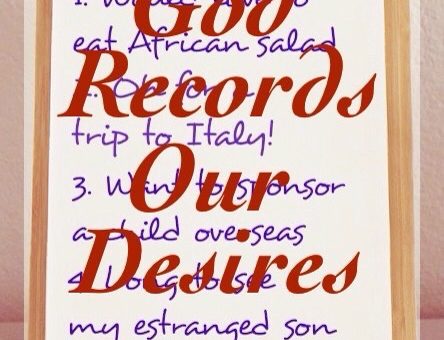 God
Records
Our
Desires
1. Would love to
eat African salad
2. Oh for a
trip to Italy!
3. Want to sponsor
a child overseas
4. Long to see
my estranged son